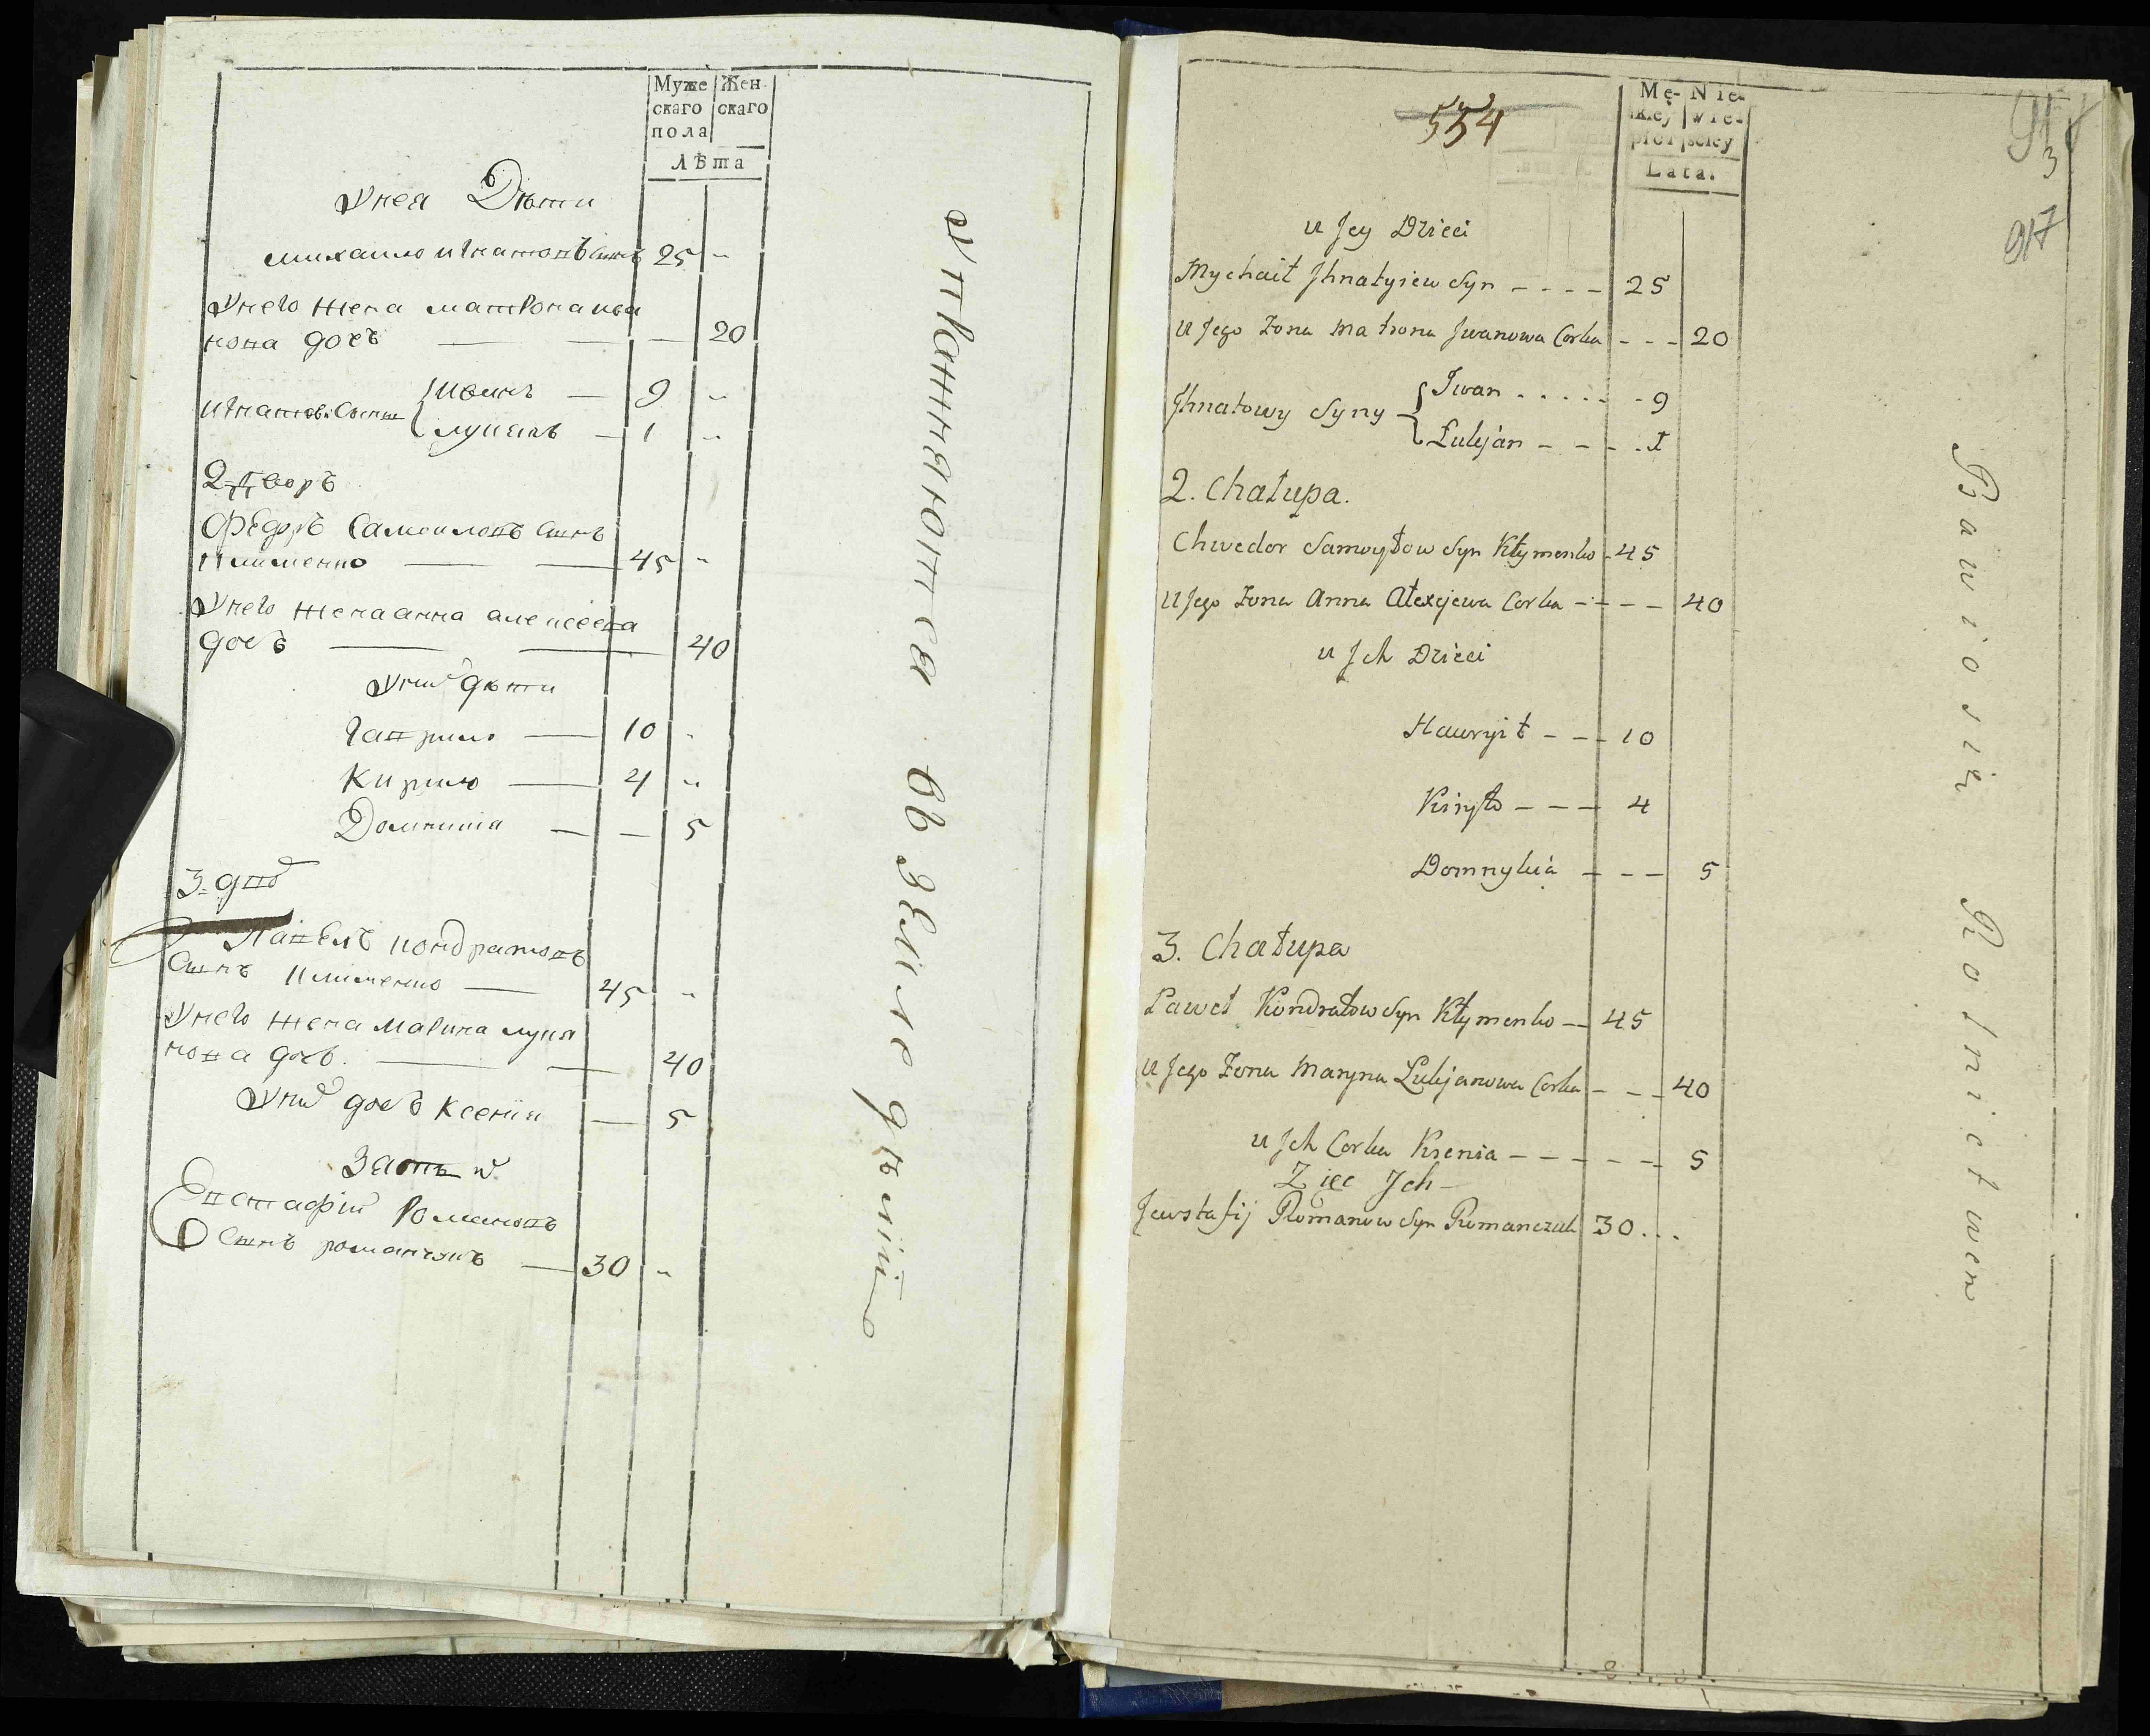 Муже Жен-
скаго скаго
пола
Лѣта
Унея Дѣти
михаило игнатовъ сынъ 25 "
Унего жена матрона ива
нова дочъ — — — 20
игнатовы сыны { иванъ — 9 "
лукянъ — 1 "
2-Дворъ
Ѳедоръ Самоиловъ сынъ
Клименко — — 45 "
Унего жена анна алексеева
дочъ — — 40
Уних дѣти
гаврило — 10 "
Кирило — 4 "
Домникия — — 5
3-дво
Павелъ кондратовъ
сынъ Клименко — 45 "
Унего жена Марина лукя
нова дочъ. — — 40
Уних дочъ Ксения — 5
Зять их
Евстафий Романовъ
сынъ романчукъ — 30 "
Упражняются въ земледѣлии
554
Mę- Nie-
skiey wie-
płci sciey
Lata.
917
u Jey Dzieci
Mychaił Jhnatyiew Syn - - - - 25
u Jego Zona Matrona Jwanowa Corka - - - 20
Jhnatowy Syny { Iwan . . . . . - 9
Łukjan - - - . 1
2. Chałupa.
Chwedor Samoyłow Syn Kłymenko - 45
u Jego Zona Anna Alexejewa Corka - - - - 40
u Jch Dzieci
Hawryił - - - 10
Kiryło - - - 4
Domnykia - - - 5
3. Chałupa
Paweł Kondratow Syn Kłymenko — 45
u Jego Zona Maryna Łukjanowa Corka - - - 40
u Jch Corka Ksenia - - - - - - 5
Zięc Jch -
Jewstafij Romanow Syn Romanczuk 30 . . .
Bawiosię Rolnictwem